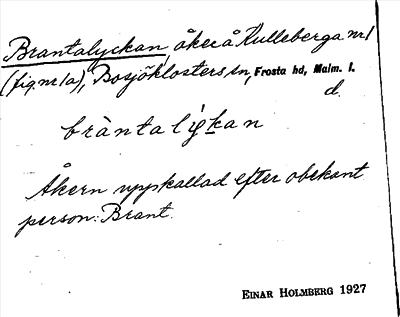 Brantalyckan, åker å Kulleberga nr 1
(fig. nr 1a), Bosjöklosters sn, Frosta hd, Malm. l.
d.
bràntalykan
Åkern uppkallad efter obekant
person: Brant.
EINAR HOLMBERG 1927